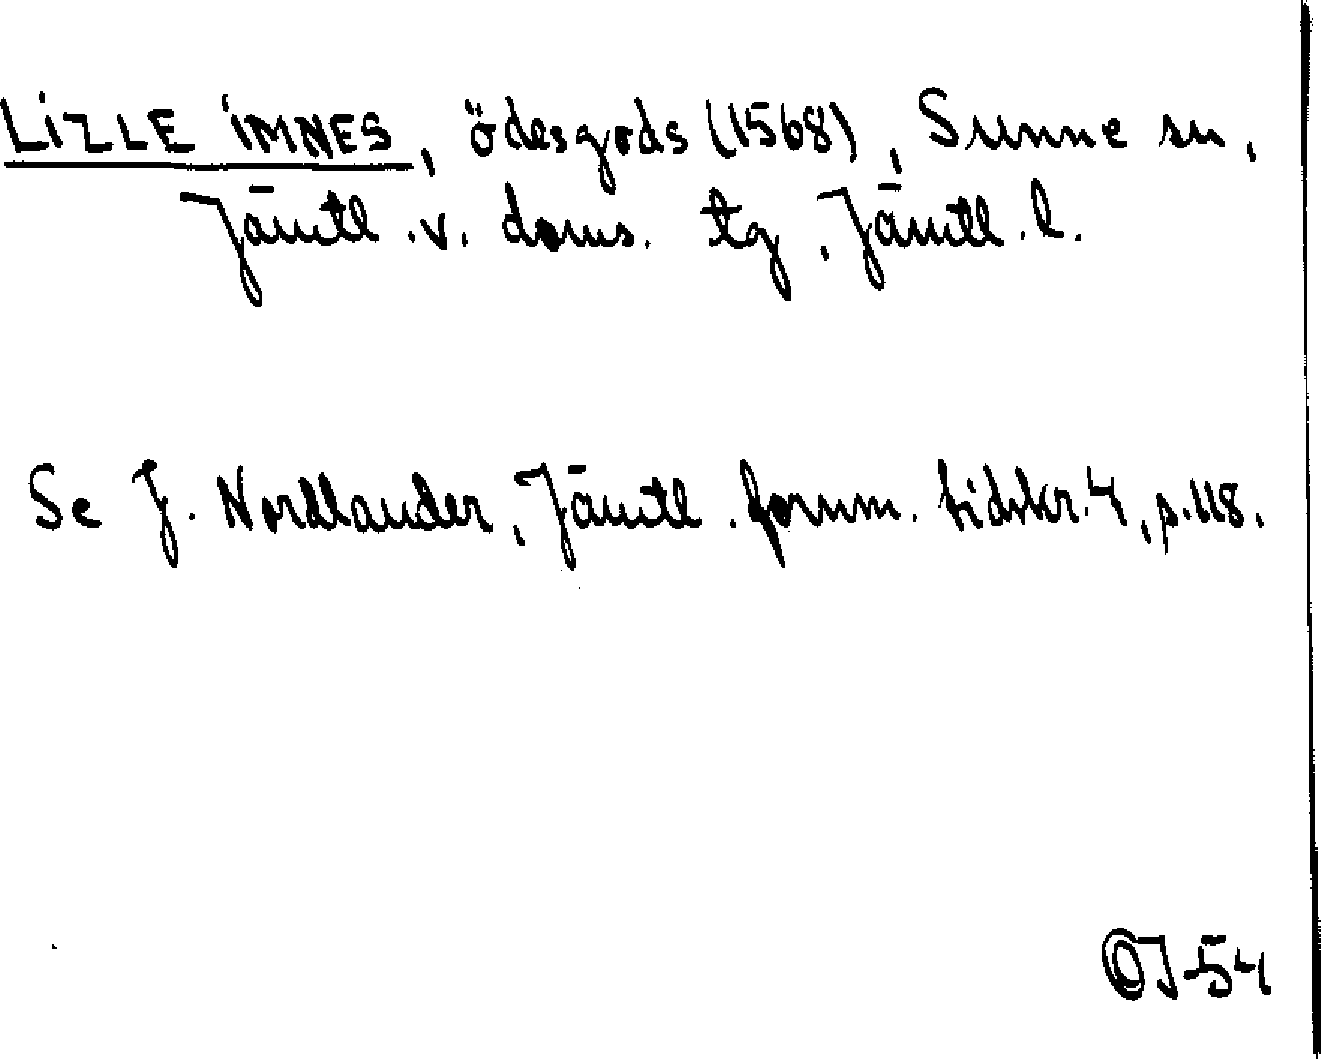 LIZLE IMNES, ödesgods (1568), Sunne sn,
Jämtl. v. doms. tg, Jämtl. l.
Se J. Nordlander, Jämtl. fornm. tidskr. 4, p. 118.
OJ-54